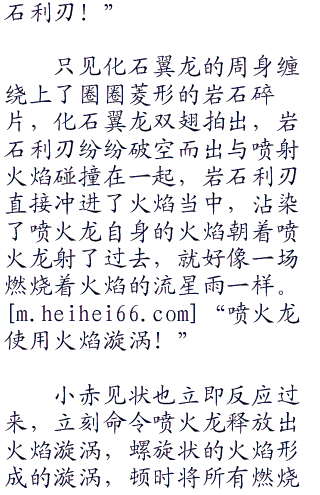 石利刃！”
只见化石翼龙的周身缠
绕上了圈圈菱形的岩石碎
片，化石翼龙双翅拍出，岩
石利刃纷纷破空而出与喷射
火焰碰撞在一起，岩石利刃
直接冲进了火焰当中，沾染
了喷火龙自身的火焰朝着喷
火龙射了过去，就好像一场
燃烧着火焰的流星雨一样。
[m.heihei66.com]“喷火龙
使用火焰漩涡！”
小赤见状也立即反应过
来，立刻命令喷火龙释放出
火焰漩涡，螺旋状的火焰形
成的漩涡，顿时将所有燃烧